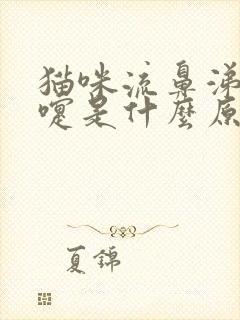 猫咪流鼻涕
嚏是什麼原
夏錦